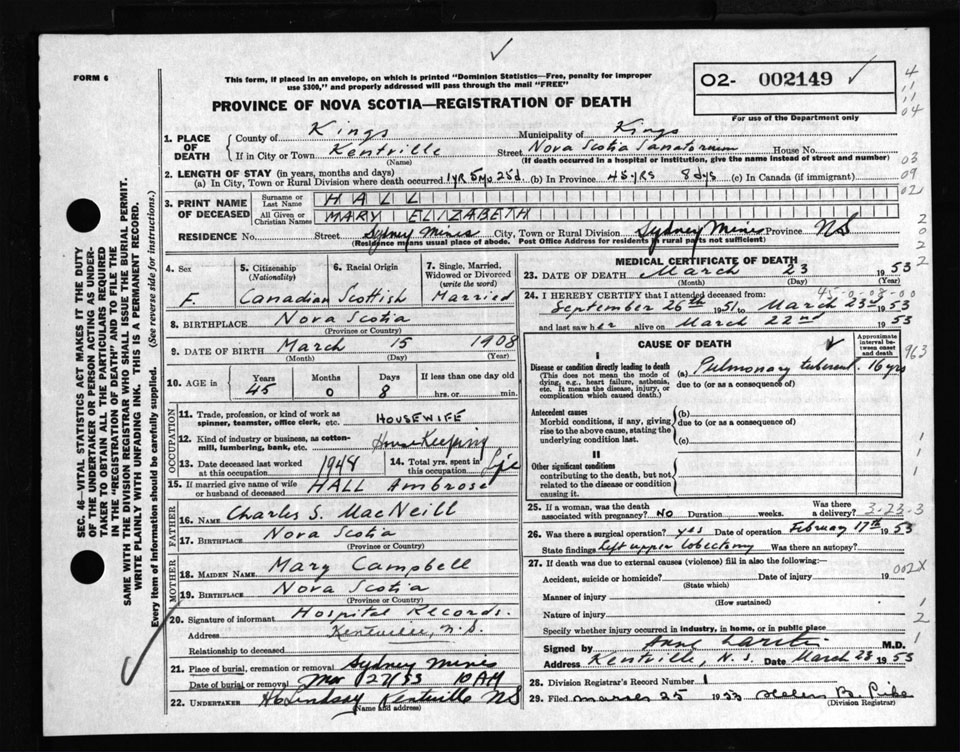 FORM 6
This form, if placed in an envelope, on which is printed "Dominion Statistics—Free, penalty for improper
use $300," and properly addressed will pass through the mail "FREE"
O2- 002149
For use of the Department only
PROVINCE OF NOVA SCOTIA—REGISTRATION OF DEATH
1. PLACE OF DEATH
County of Kings Municipality of Kings
If in City or Town Kentville Street Nova Scotia Sanatorium House No.
(Name) (If death occurred in a hospital or institution, give the name instead of street and number)
2. LENGTH OF STAY (in years, months and days)
(a) In City, Town or Rural Division where death occurred 1 yr 5 mo 25 d. (b) In Province 45 yrs 8 dys (c) In Canada (if immigrant)
3. PRINT NAME OF DECEASED
Surname or Last Name HALL
All Given or Christian Names MARY ELIZABETH
RESIDENCE No. Street Sydney Mines City, Town or Rural Division Sydney Mines Province NS
(Residence means usual place of abode. Post Office Address for residents in rural parts not sufficient)
4. Sex
F.
5. Citizenship (Nationality)
Canadian
6. Racial Origin
Scottish
7. Single, Married, Widowed or Divorced (write the word)
Married
8. BIRTHPLACE Nova Scotia
(Province or Country)
9. DATE OF BIRTH March 15 1908
(Month) (Day) (Year)
10. AGE in
Years Months Days If less than one day old
45 0 8 hrs. or min.
OCCUPATION
11. Trade, profession, or kind of work as
spinner, teamster, office clerk, etc. HOUSEWIFE
12. Kind of industry or business, as cotton-
mill, lumbering, bank, etc. House Keeping
13. Date deceased last worked
at this occupation 1948
14. Total yrs. spent in
this occupation Life
15. If married give name of wife
or husband of deceased HALL Ambrose
FATHER
16. NAME Charles S. MacNeill
17. BIRTHPLACE Nova Scotia
(Province or Country)
MOTHER
18. MAIDEN NAME Mary Campbell
19. BIRTHPLACE Nova Scotia
(Province or Country)
20. Signature of informant Hospital Records.
Address Kentville, N.S.
Relationship to deceased
21. Place of burial, cremation or removal Sydney Mines
Date of burial or removal Mar 27/53 10 AM
22. UNDERTAKER Lindsay Kentville NS
(Name and address)
MEDICAL CERTIFICATE OF DEATH
23. DATE OF DEATH March 23 1953
(Month) (Day) (Year)
24. I HEREBY CERTIFY that I attended deceased from:
45-0-03-00
September 26th 1951 to March 23rd 1953
and last saw her alive on March 22nd 1953
CAUSE OF DEATH
Approximate interval between onset and death
I
Disease or condition directly leading to death
(This does not mean the mode of
dying, e.g., heart failure, asthenia,
etc. It means the disease, injury, or
complication which caused death.)
(a) Pulmonary tubercul. 16 yrs
due to (or as a consequence of)
Antecedent causes
Morbid conditions, if any, giving
rise to the above cause, stating the
underlying condition last.
(b)
due to (or as a consequence of)
(c)
II
Other significant conditions
contributing to the death, but not
related to the disease or condition
causing it.
25. If a woman, was the death
associated with pregnancy? NO Duration weeks. Was there a delivery? 3-23-3
26. Was there a surgical operation? yes Date of operation February 17th 1953
State findings left upper lobectomy Was there an autopsy?
27. If death was due to external causes (violence) fill in also the following:—
Accident, suicide or homicide? Date of injury 19
(State which)
002X
Manner of injury
(How sustained)
Nature of injury
Specify whether injury occurred in industry, in home, or in public place
Signed by Anne M.D.
Address Kentville, N.S. Date March 23 1953
28. Division Registrar's Record Number 1
29. Filed March 25 1953 Helen B. Pike
(Division Registrar)
4
11
11
04
03
09
02
2
0
2
2
963
1
1
1
2
SEC. 46—VITAL STATISTICS ACT MAKES IT THE DUTY
OF THE UNDERTAKER OR PERSON ACTING AS UNDER-
TAKER TO OBTAIN ALL THE PARTICULARS REQUIRED
IN THE "REGISTRATION OF DEATH" AND TO FILE THE
SAME WITH THE DIVISION REGISTRAR WHO SHALL ISSUE THE BURIAL PERMIT.
WRITE PLAINLY WITH UNFADING INK. THIS IS A PERMANENT RECORD.
Every item of Information should be carefully supplied. (See reverse side for instructions.)